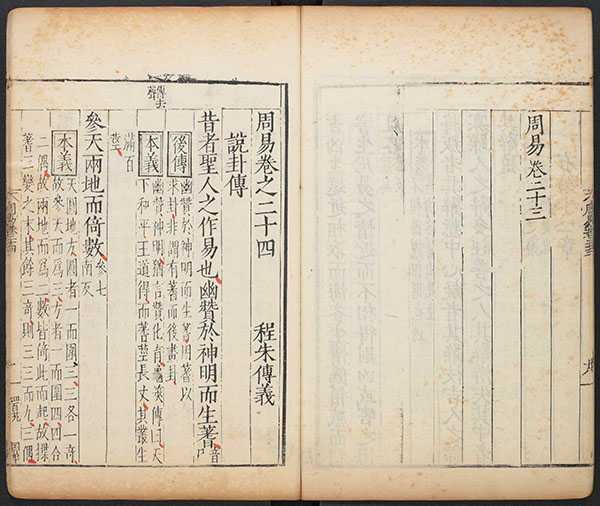 周易卷二十三
周易卷之二十四
說卦傳 程朱傳義
昔者聖人之作易也幽贊於神明而生蓍音
後傳
幽贊於神明而生蓍用蓍以
求卦非謂有蓍而後畫卦
本義
幽贊神明猶言贊化育龜筴傳曰天
下和平王道得而蓍莖長丈其叢生
滿百
莖
參天兩地而倚數
參七
南反
本義
天圓地方圓者一而圍三三各一奇
故參天而為三方者一而圍四四合
二偶故兩地而為二數皆倚此而起故揲
蓍三變之末其餘三奇則三三而九三偶